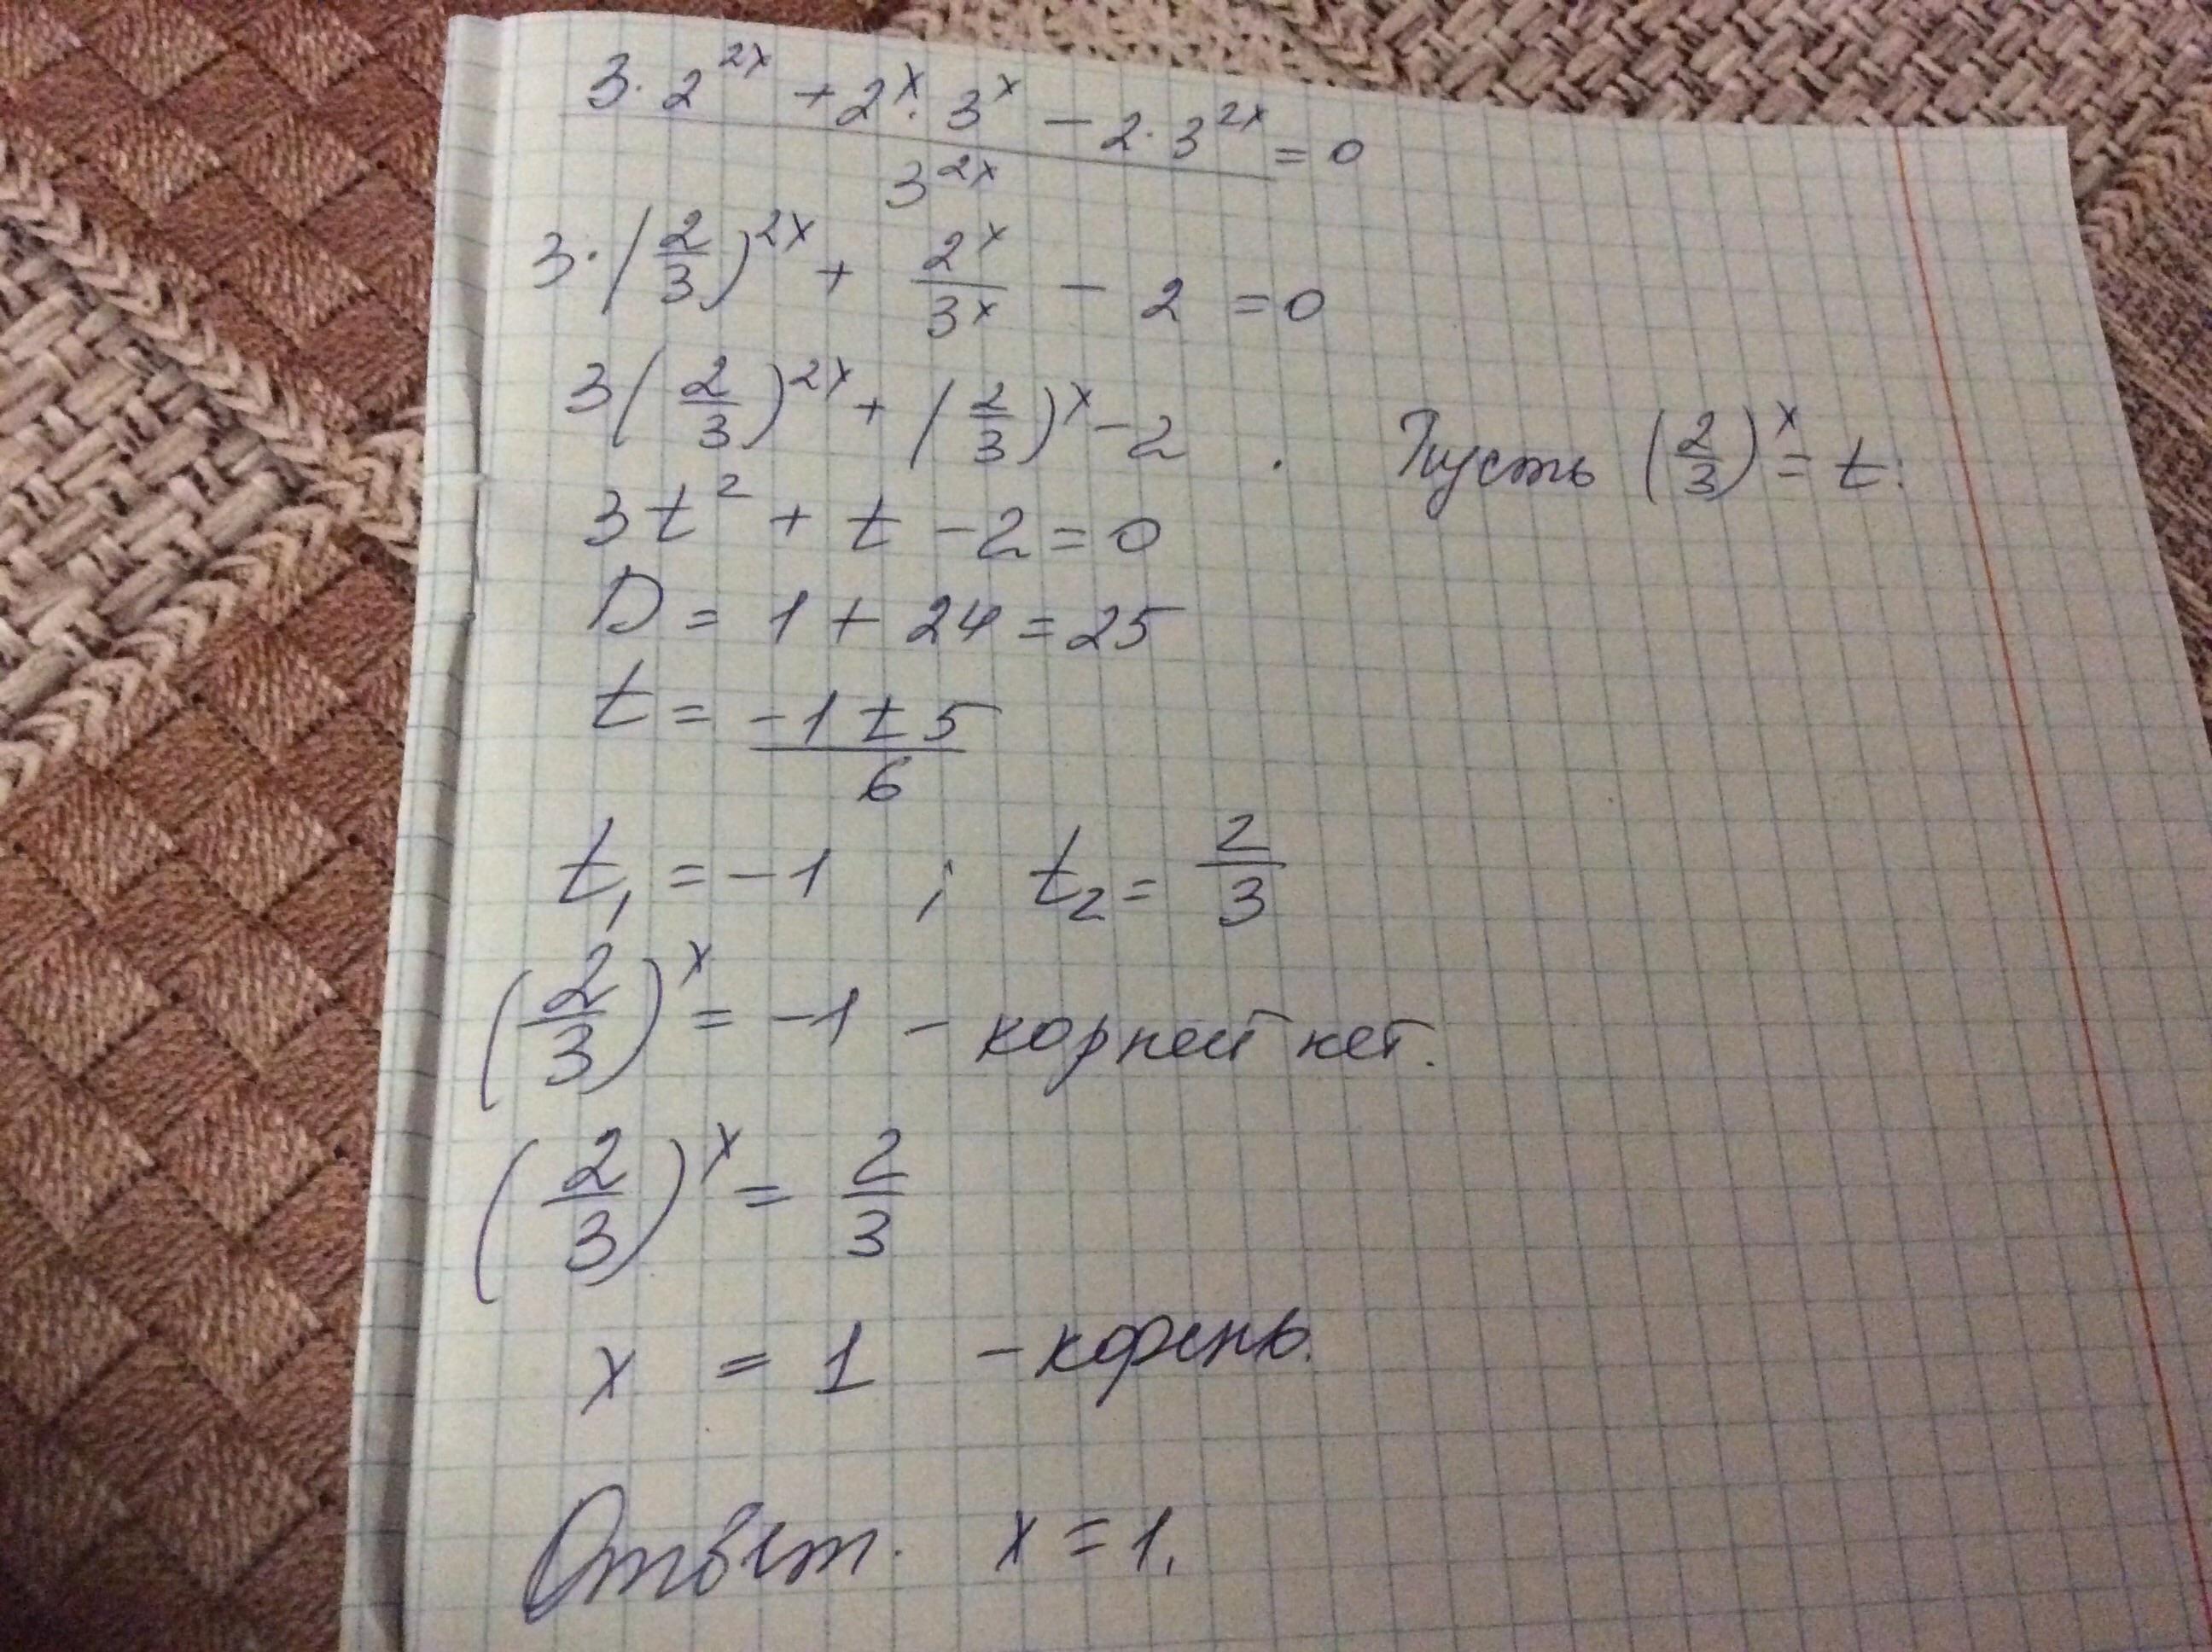 3·2^{2x} + 2^x·3^x − 2·3^{2x} = 0
3^{2x}
3·(2/3)^{2x} + 2^x/3^x − 2 = 0
3(2/3)^{2x} + (2/3)^x − 2 . Пусть (2/3)^x = t:
3t² + t − 2 = 0
D = 1 + 24 = 25
t = (−1 ± 5)/6
t₁ = −1 ; t₂ = 2/3
(2/3)^x = −1 – корней нет.
(2/3)^x = 2/3
x = 1 – корень.
Ответ. x = 1.